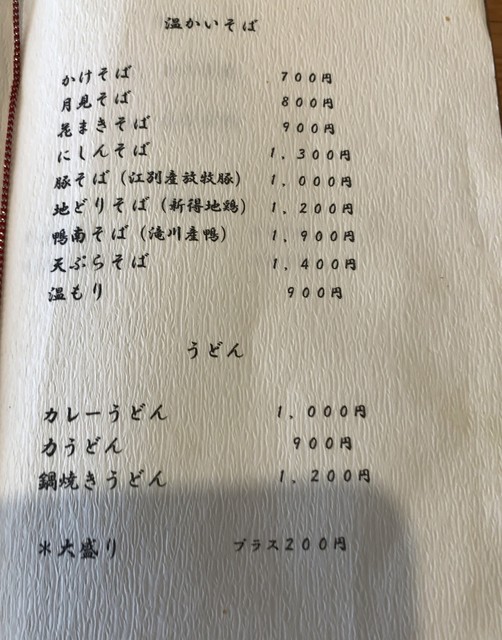 温かいそば
かけそば 700円
月見そば 800円
花まきそば 900円
にしんそば 1,300円
豚そば（江別産放牧豚） 1,000円
地どりそば（新得地鶏） 1,200円
鴨南そば（滝川産鴨） 1,900円
天ぷらそば 1,400円
温もり 900円
うどん
カレーうどん 1,000円
力うどん 900円
鍋焼きうどん 1,200円
＊大盛り プラス200円